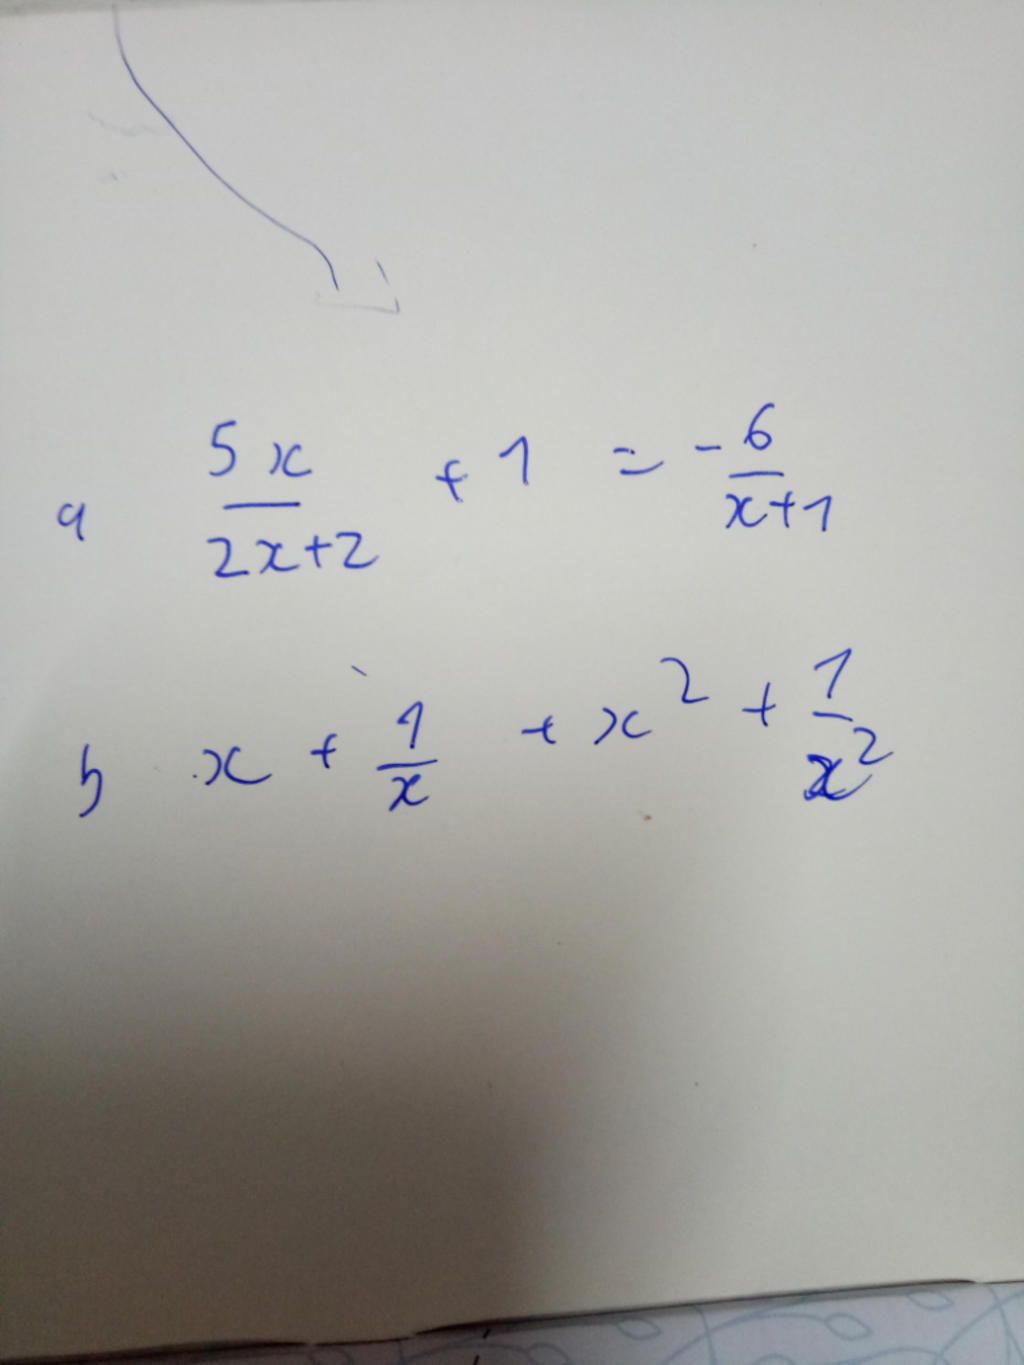 a 5x/(2x+2) + 1 = -6/(x+1)
b x + 1/x + x² + 1/x²